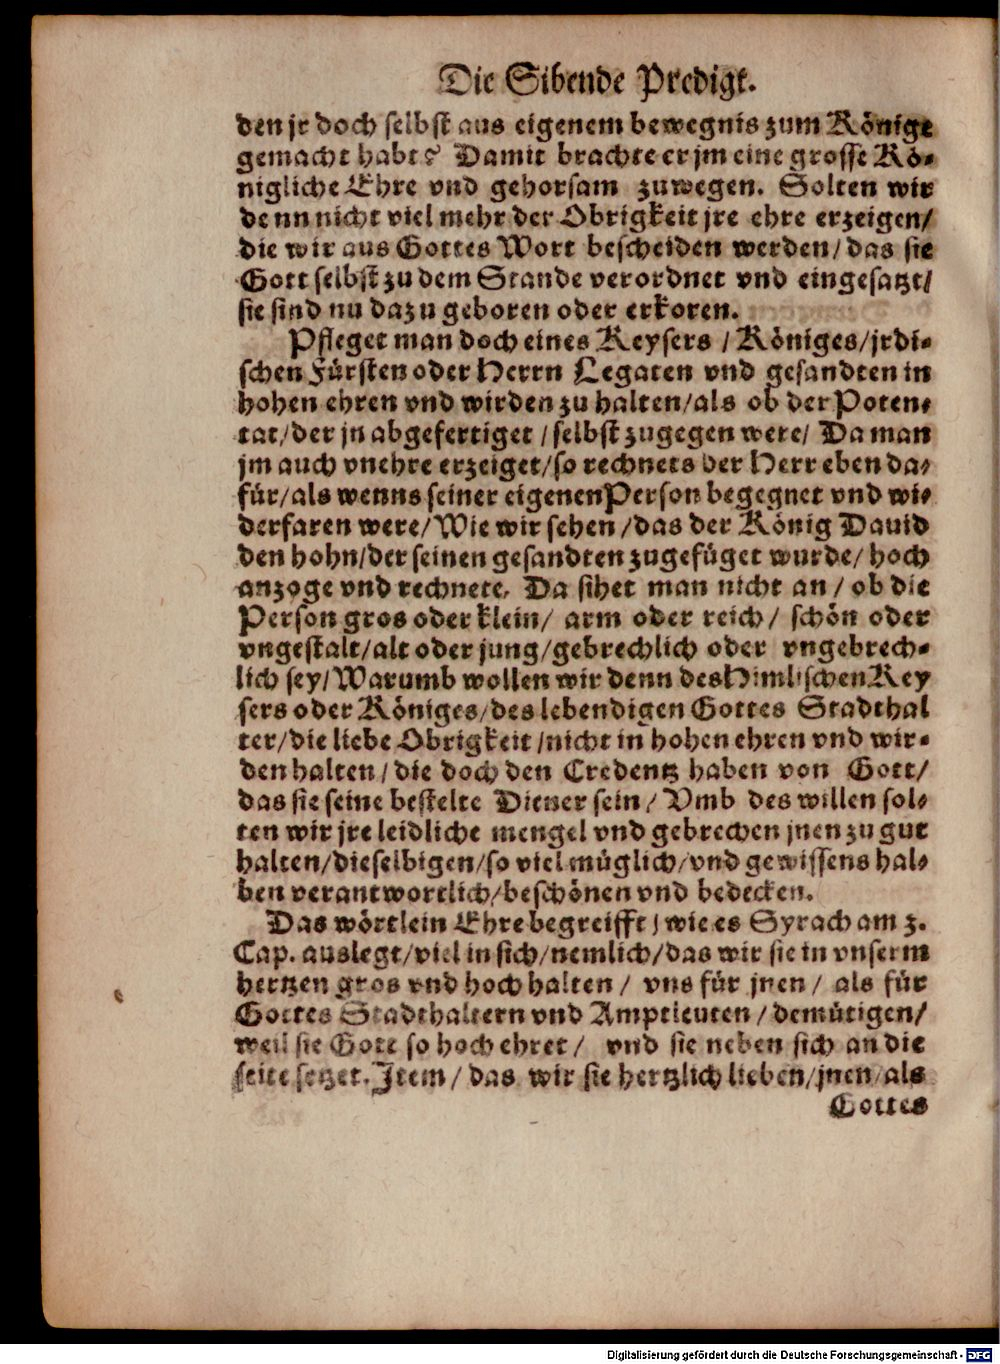 Die Sibende Predigt.
den jr doch selbst aus eigenem bewegnis zum Könige
gemacht habt? Damit brachte er jm eine grosse Kö-
nigliche Ehre vnd gehorsam zuwegen. Solten wir
denn nicht viel mehr der Obrigkeit jre ehre erzeigen/
die wir aus Gottes Wort bescheiden werden/das sie
Gott selbst zu dem Stande verordnet vnd eingesatzt/
sie sind nu dazu geboren oder erkoren.
Pfleget man doch eines Keysers / Königes/jrdi-
schen Fürsten oder Herrn Legaten vnd gesandten in
hohen ehren vnd wirden zu halten/als ob der Poten-
tat/der jn abgefertiget /selbst zugegen were/ Da man
jm auch vnehre erzeiget/so rechnets der Herr eben da-
für/als wenns seiner eigenen Person begegnet vnd wi-
derfaren were/Wie wir sehen /das der König Dauid
den hohn/der seinen gesandten zugefüget wurde/ hoch
anzoge vnd rechnete. Da sihet man nicht an / ob die
Person gros oder klein/ arm oder reich/ schön oder
vngestalt/alt oder jung/gebrechlich oder vngebrech-
lich sey/Warumb wollen wir denn des Himlischen Key
sers oder Königes/des lebendigen Gottes Stadthal
ter/die liebe Obrigkeit /nicht in hohen ehren vnd wir-
den halten /die doch den Credentz haben von Gott/
das sie seine bestelte Diener sein / Vmb des willen sol-
ten wir jre leidliche mengel vnd gebrechen jnen zu gut
halten/dieselbigen/so viel müglich/vnd gewissens hal-
ben verantwortlich/beschönen vnd bedecken.
Das wörtlein Ehre begreifft / wie es Syrach am 3.
Cap. auslegt/viel in sich/nemlich/das wir sie in vnserm
hertzen gros vnd hoch halten / vns für jnen / als für
Gottes Stadthaltern vnd Amptleuten / demütigen/
weil sie Gott so hoch ehret / vnd sie neben sich an die
seite setzet. Item / das wir sie hertzlich lieben/jnen als
Gottes
Digitalisierung gefördert durch die Deutsche Forschungsgemeinschaft - DFG